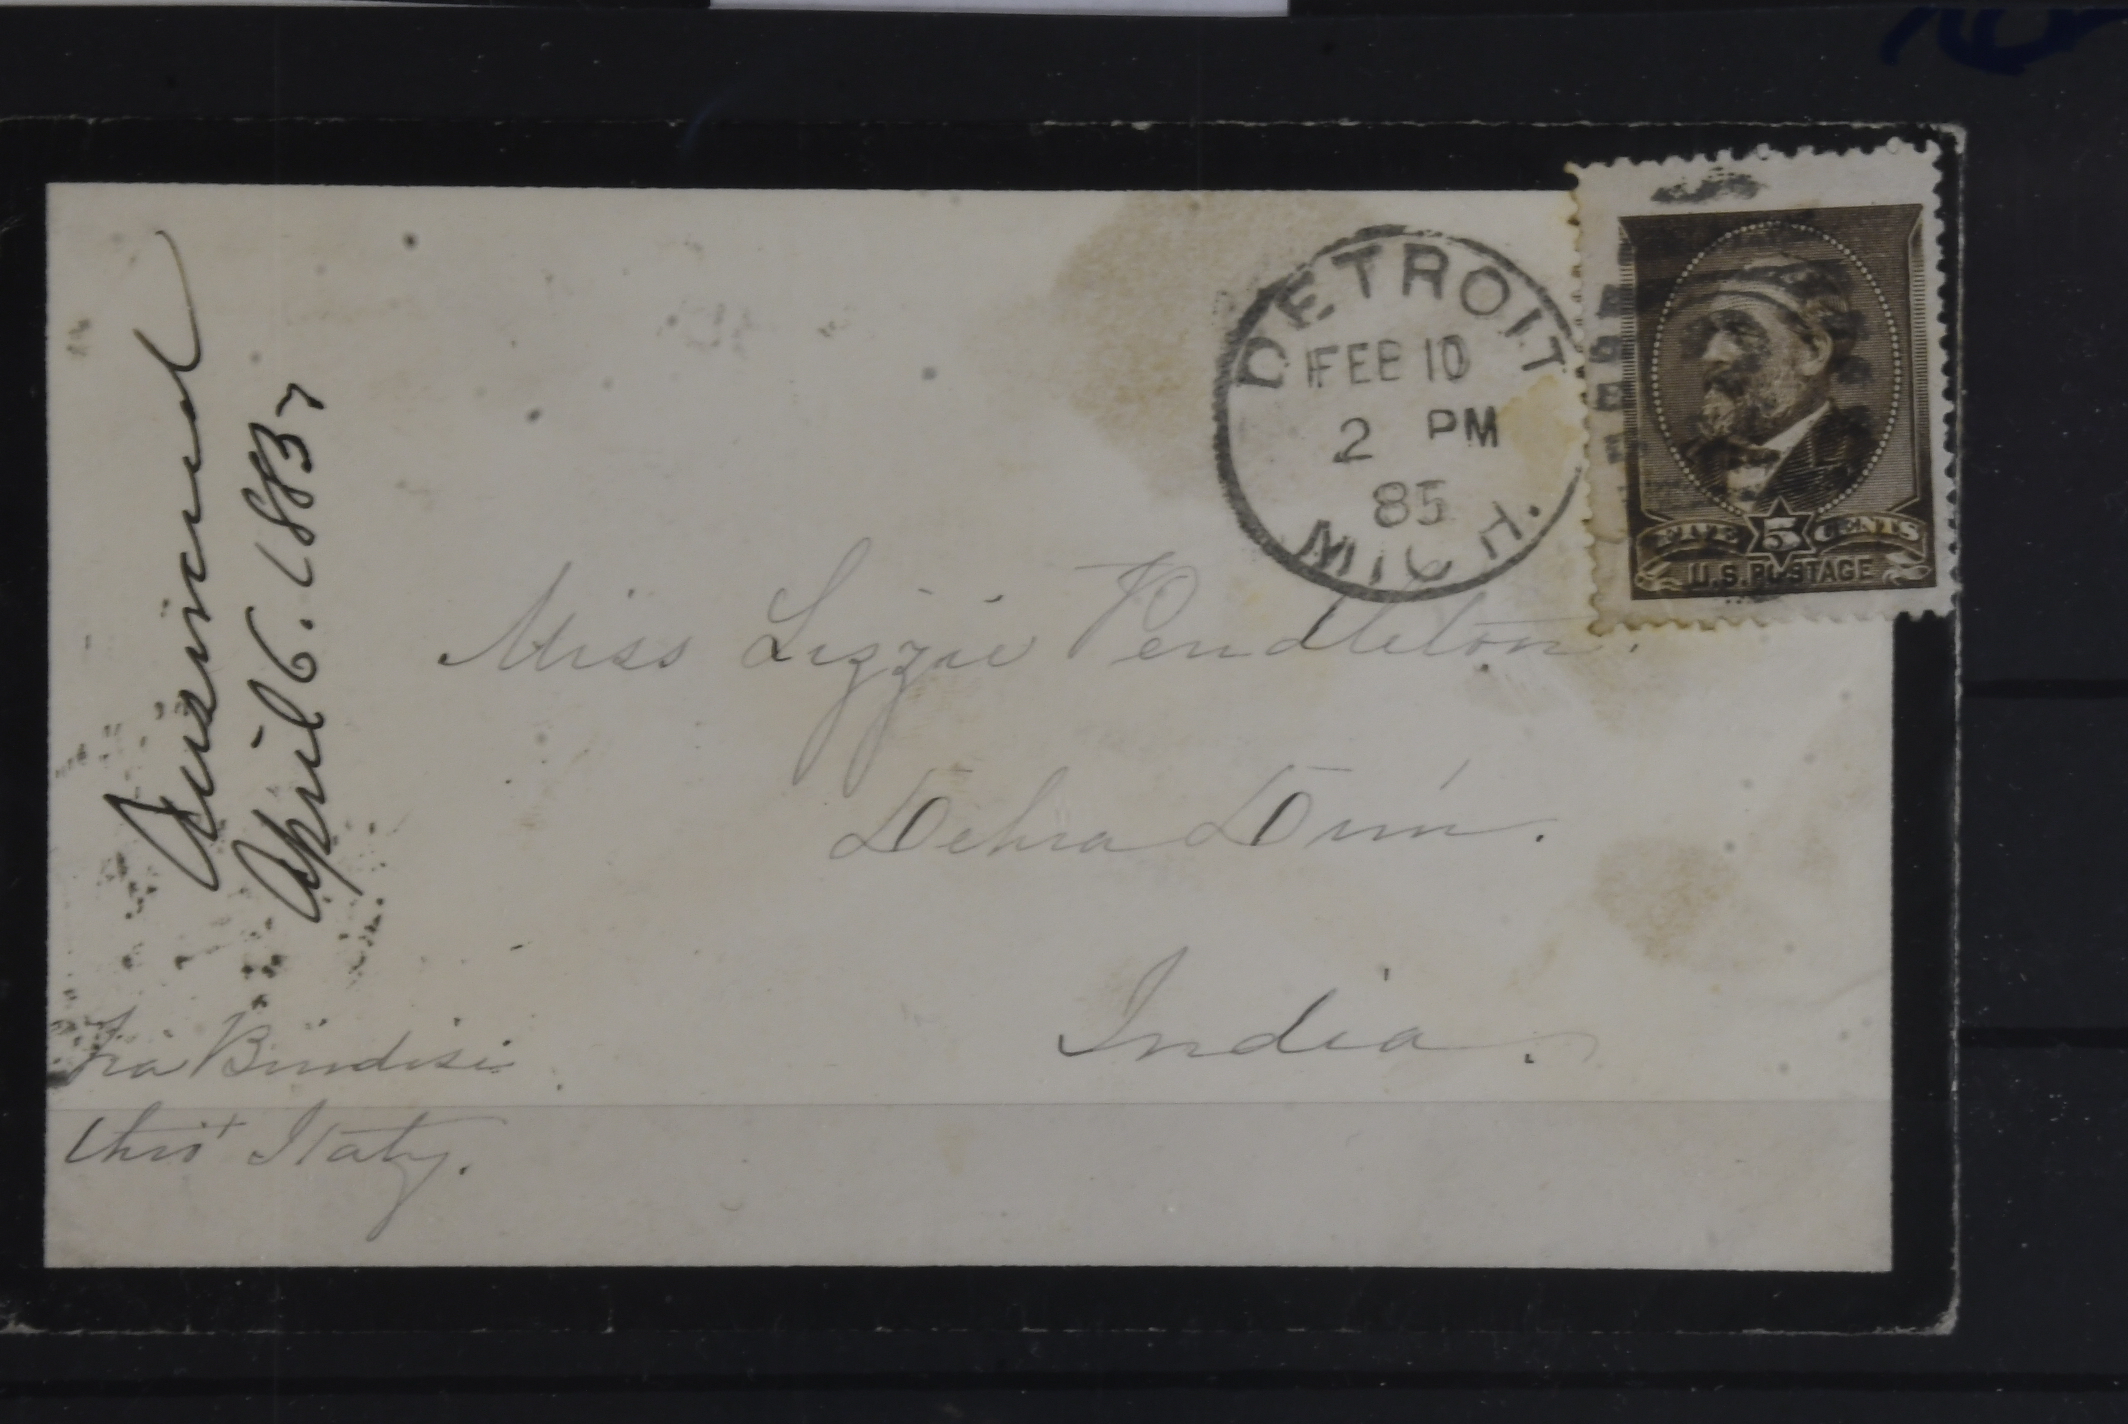 DETROIT
FEB 10
2 PM
85
MICH.
FIVE 5 CENTS
U.S. POSTAGE
Miss Lizzie Pendleton.
Dehra Dún.
India.
Via Brindisi
thro' Italy.
Answered
April 6. 1885